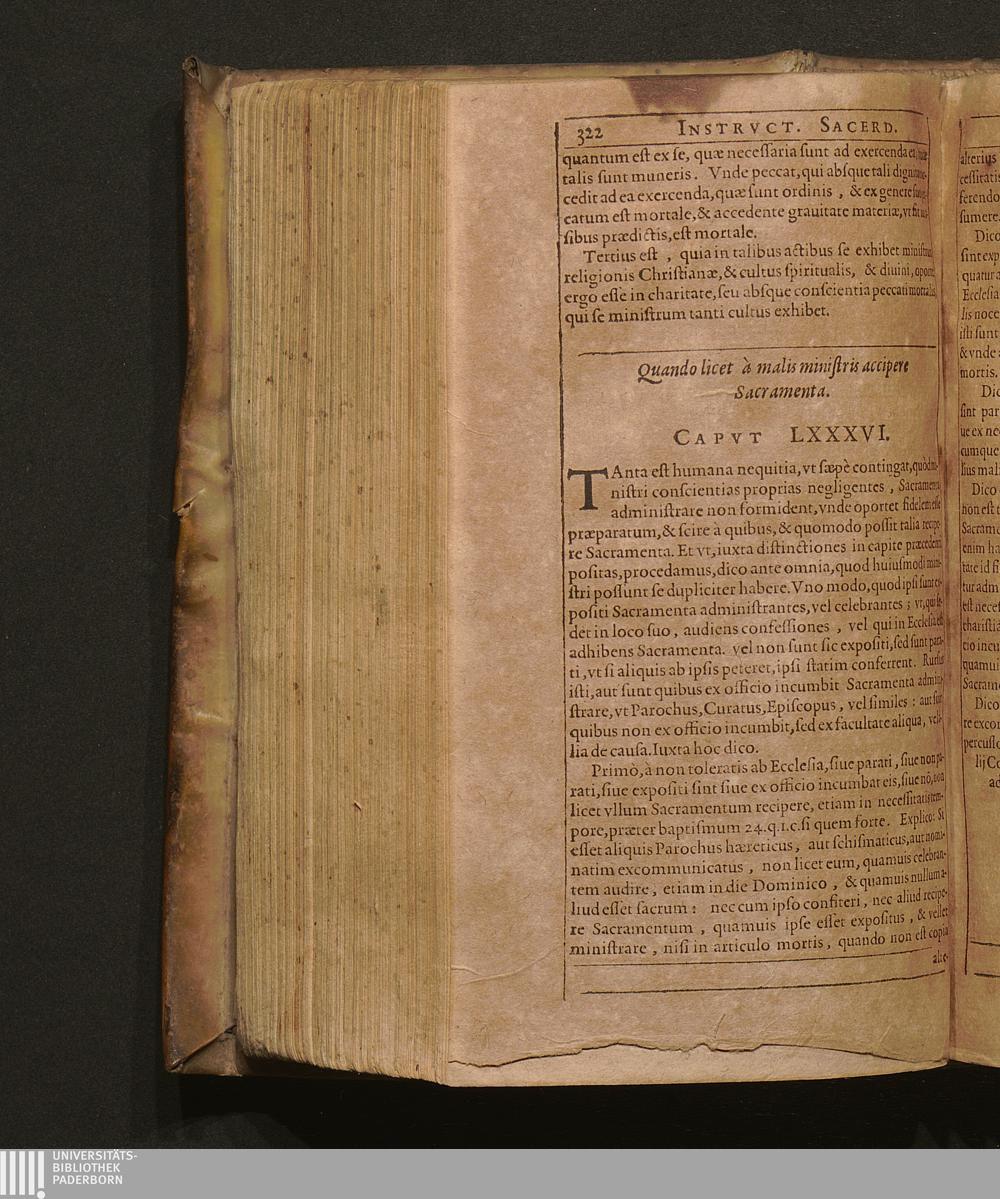 322 INSTRVCT. SACERD.
quantum est ex se, quæ necessaria sunt ad exercenda ea,
talis sunt muneris. Vnde peccat, qui absque tali
cedit ad ea exercenda, quæ sunt ordinis, & ex genere
catum est mortale, & accedente grauitate materiæ, vt fit
sibus prædictis, est mortale.
Tertius est, quia in talibus actibus se exhibet
religionis Christianæ, & cultus spiritualis, & diuini,
ergo esse in charitate, seu absque conscientia peccati mortalis,
qui se ministrum tanti cultus exhibet.
Quando licet à malis ministris accipere
Sacramenta.
CAPVT LXXXVI.
TAnta est humana nequitia, vt sæpè contingat, quòd mi-
nistri conscientias proprias negligentes, Sacramenta
administrare non formident, vnde oportet fidelem esse
præparatum, & scire à quibus, & quomodo possit talia recipe-
re Sacramenta. Et vt, iuxta distinctiones in capite præcedenti
positas, procedamus, dico ante omnia, quod huiusmodi mini-
stri possunt se dupliciter habere. Vno modo, quod ipsi sunt ex-
positi Sacramenta administrantes, vel celebrantes; vt, qui se-
det in loco suo, audiens confessiones, vel qui in Ecclesia est
adhibens Sacramenta. vel non sunt sic expositi, sed sunt para-
ti, vt si aliquis ab ipsis peteret, ipsi statim conferrent. Rursus
isti, aut sunt quibus ex officio incumbit Sacramenta admini-
strare, vt Parochus, Curatus, Episcopus, vel similes: aut sunt
quibus non ex officio incumbit, sed ex facultate aliqua, vel a-
lia de causa. Iuxta hoc dico.
Primò, à non toleratis ab Ecclesia, siue parati, siue non pa-
rati, siue expositi sint siue ex officio incumbat eis, siue nō, non
licet vllum Sacramentum recipere, etiam in necessitatis tem-
pore, præter baptismum 24.q.1.c.si quem forte. Explico: Si
esset aliquis Parochus hæreticus, aut schismaticus, aut nomi-
natim excommunicatus, non licet eum, quamuis celebran-
tem audire, etiam in die Dominico, & quamuis nullum a-
liud esset sacrum: nec cum ipso confiteri, nec aliud recipe-
re Sacramentum, quamuis ipse esset expositus, & vellet
ministrare, nisi in articulo mortis, quando non est copia
alte-
alterius
cessitatis
ferendo
sumere.
Dico
sint exp
quatur a
Ecclesia
lis noce
isti sunt
& vnde
mortis.
Dic
sint par
ue ex ne
cumque
lius mal
Dico
non est t
Sacrame
enim ha
tate id fi
tur adm
est neces
charistiā
cio incu
quamui
Sacrame
Dico
re excor
percusso
lij Co
ad
UNIVERSITÄTS-
BIBLIOTHEK
PADERBORN